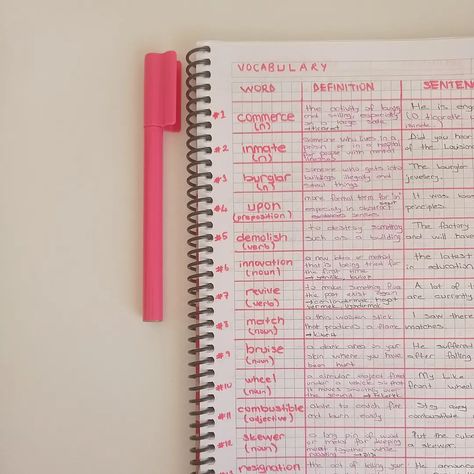 VOCABULARY
WORD DEFINITION SENTEN
#1 commerce (n) the activity of buying and selling, especially on a large scale → ticaret
He is eng
#2 inmate (n) someone who lives in a prison or in a hospital for people with mental
Did you hear of the Louisian
#3 burglar (n) someone who gets into buildings illegally and steal things
The burglar jewellery.
#4 upon (preposition) more formal term for "on" especially in abstract senses
It was principles.
#5 demolish (verb) to destroy something such as a building
The factory and will have
#6 innovation (noun) a new idea or method that is being tried for the first time
the latest in education
#7 revive (verb) to make something from the past exist again
A lot of t are current
#8 match (noun) a thin wooden stick that produces a flame → kibrit
I saw there matches.
#9 bruise (noun) a dark area in your skin where you have been hurt
He suffered after falling
#10 wheel (noun) a circular object fixed under a vehicle so that it moves smoothly over the ground → tekerlek
My bike front wheel
#11 combustible (adjective) able to catch fire and burn easily
Stay away combustible
#12 skewer (noun) a long pin of wood or metal for keeping meat together while
Put the cube a skewer.
resignation the act of telling your
He announ